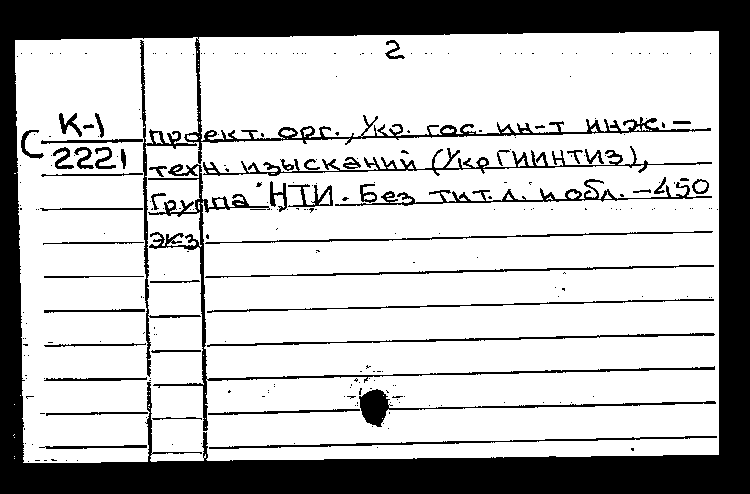 2
С К-1
2221
проект. орг., Укр. гос. ин-т инж.-
техн. изысканий (УкрГИИНТИЗ),
Группа НТИ. Без тит.л. и обл. -450
экз.